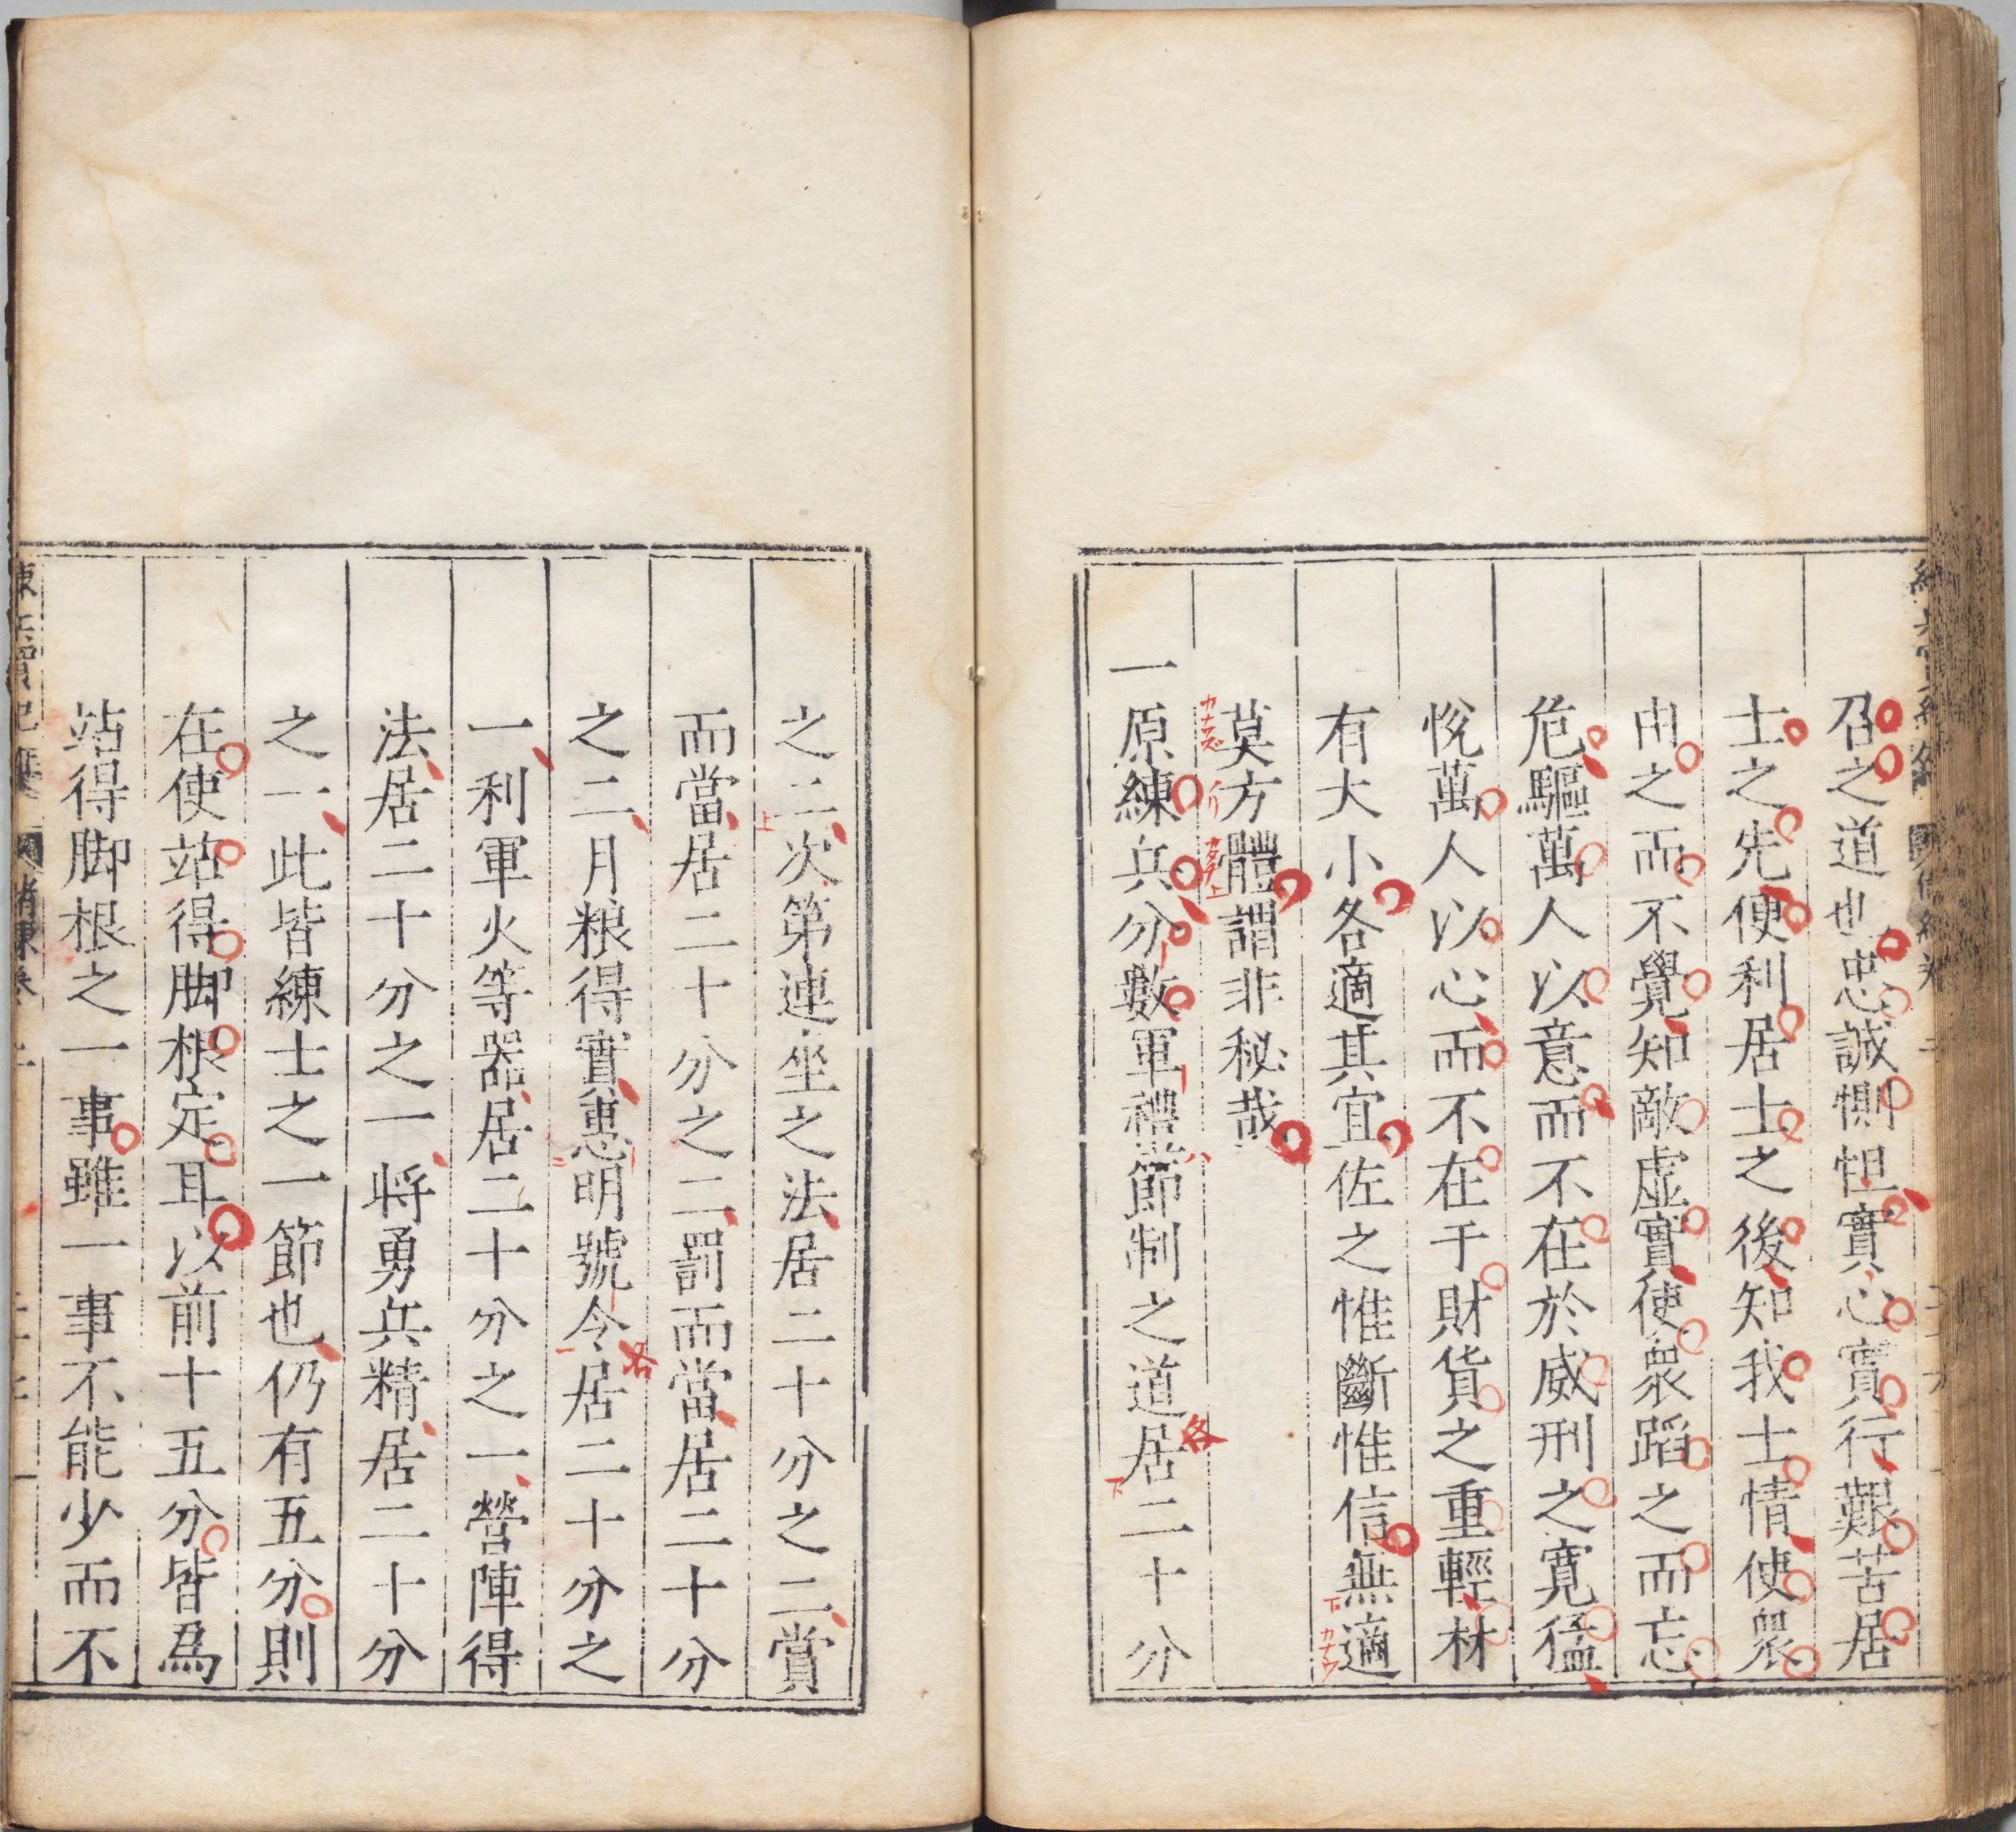 召之道也忠誠惻怛實心實行艱苦居
士之先便利居士之後知我士情使衆
由之而不覺知敵虛實使衆蹈之而忘
危驅萬人以意而不在於威刑之寬猛
悅萬人以心而不在于財貨之重輕材
有大小各適其宜佐之惟斷惟信無適
莫方體謂非秘哉
一原練兵分數軍禮節制之道居二十分
之二次第連坐之法居二十分之二賞
而當居二十分之二罰而當居二十分
之二月粮得實惠明號令居二十分之
一利軍火等器居二十分之一營陣得
法居二十分之一將勇兵精居二十分
之一此皆練士之一節也仍有五分則
在使站得脚根定耳以前十五分皆爲
站得脚根之一事雖一事不能少而不
各
各
カナラズ
カナウ
上
下
下